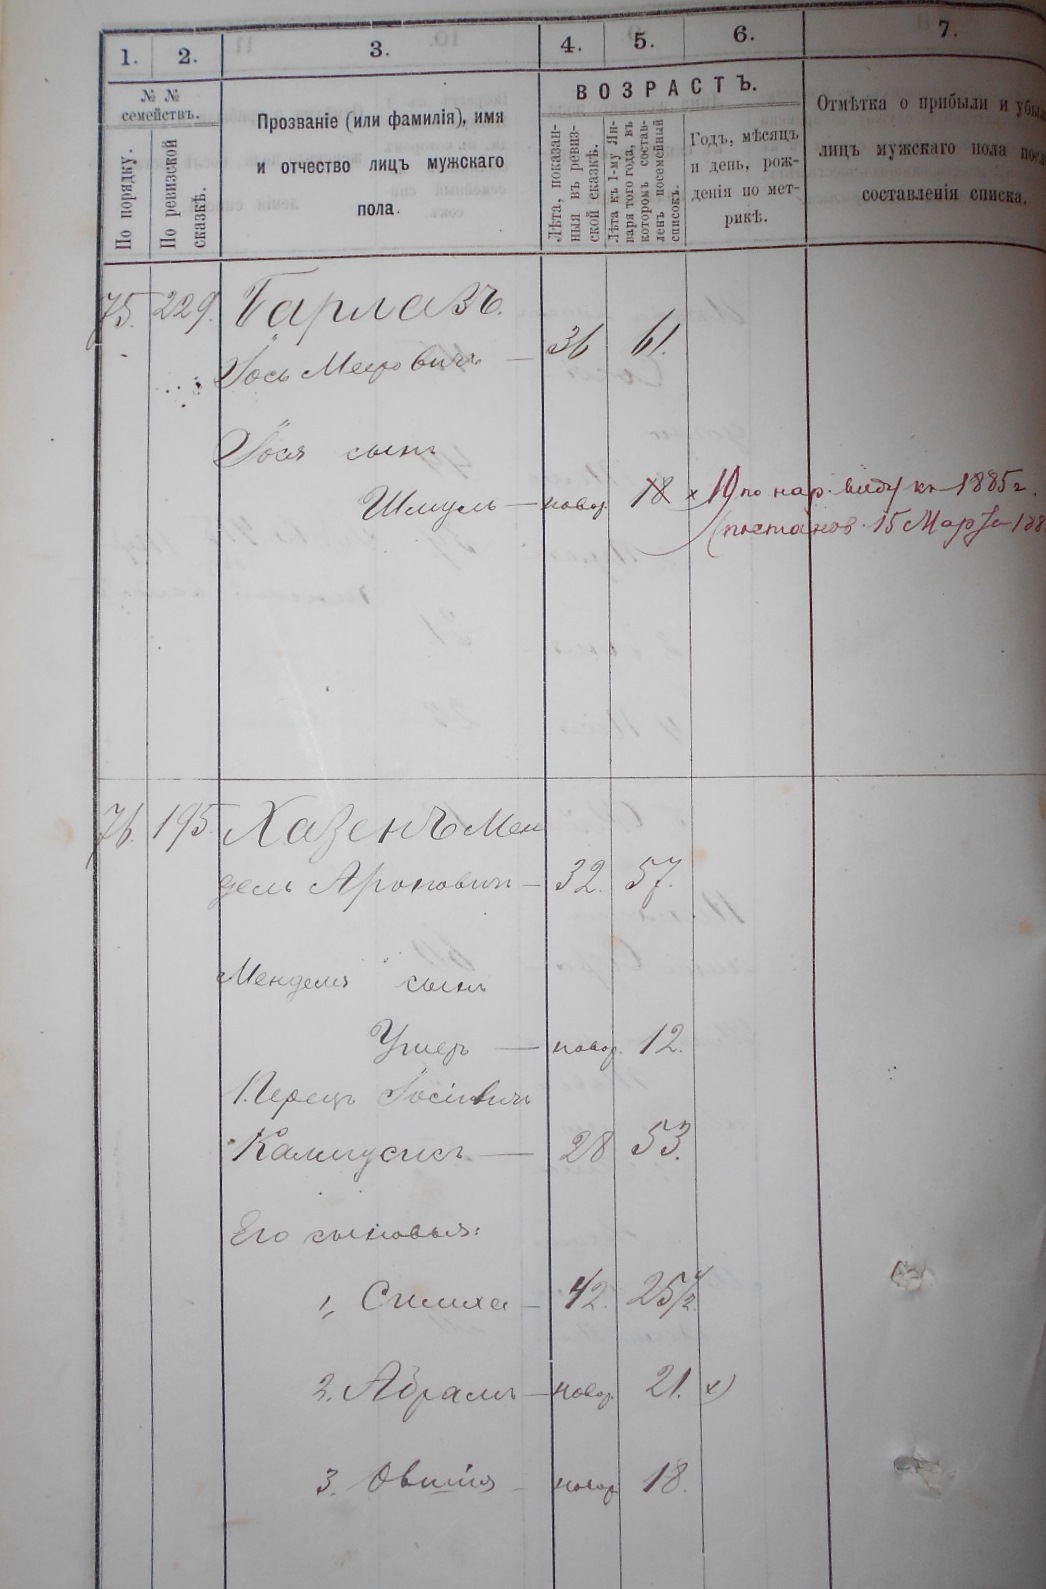 1. 2. 3. 4. 5. 6. 7.
№ №
семействъ.
По порядку.
По ревизской
сказкѣ.
Прозваніе (или фамилія), имя
и отчество лицъ мужскаго
пола.
ВОЗРАСТЪ.
Лѣта, показан-
ныя въ ревиз-
ской сказкѣ.
Лѣта къ 1-му Ян-
варя того года, въ
которомъ состав-
ленъ посемейный
списокъ.
Годъ, мѣсяцъ
и день, рож-
денія по мет-
рикѣ.
Отмѣтка о прибыли и убыл
лицъ мужскаго пола посл
составленія списка.
75. 229. Гарлазъ.
Іось Мееровичъ — 36 61.
Іося сынъ
Шмуль — новор. 18 х 19 по нар. виду къ 1885 г.
(постанов. 15 Марта 188
76. 195. Хазенъ Мен
дель Ароновичъ — 32. 57.
Менделя сынъ
Ушеръ — новор. 12.
Перецъ Іосіевичъ
28 53.
Его сыновья:
1, Симха — 25 1/2.
2. Абрамъ — новор. 21. х)
3. Овшія — новор 18.